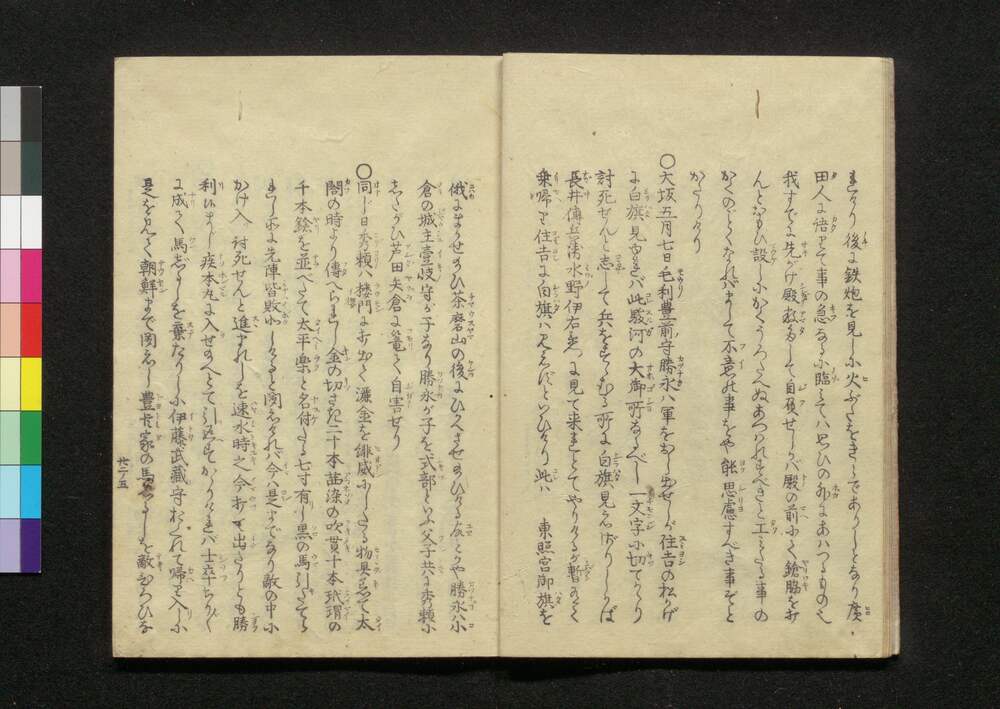 それより後に鉄炮を見しに火ぶたをきらでありしとなり廣
田人に語りて事の急なるに臨みては思ひの外にあはつるもの也
我すでに先がけ殿数多して自負せしが殿の前にて鎗脇を打
んとおもひ設しにかくうろたへぬあつはれすべきと工みたる事の
かくのごとくなればまして不意の事をや能思慮すべき事ぞと
かたりけり
〇大坂五月七日毛利豊前守勝永ハ軍をおし出せしが住吉の松かげ
に白旗見ゆれバ此駿河の大御所なるべし一文字に切てかゝり
討死せんと志して兵をすゝむる所に白旗見えざりしかば
長井傳兵衛水野伊右衛門に見て来れとてやりけるが暫のそく
乗帰り住吉に白旗ハ見えぬといひけり此ハ 東照宮御旗を
俄にまかせ給ひ茶磨山の後にひかせ給ひける故とかや勝永ハ小
倉の城主壹岐守が子なり勝永が子を式部といふ父子共に秀頼に
したがひ芦田矢倉に篭て自害せり
〇同じ日秀頼ハ楼門に打出て濃金を緋威にしたる物具して太
閤の時より傳へられし金の切さき二十本茜染の吹貫十本玳瑁の
千本鎗を並べたて太平楽と名付たる七寸有し黒の馬引たてら
れし所に先陣皆敗北しけると聞えければ今ハ是までなり敵の中に
かけ入 討死せんと進まれしを速水時之今打て出たりとも勝
利はあらじ疾本丸に入せ給へとて引返すかゝりければ士卒ちり〲
に成て馬じるしを棄たりしに伊藤武蔵守おくれて帰り入しに
是を見て朝鮮まで聞えし豊臣家の馬じるしを敵にひろひな
廿二ノ五